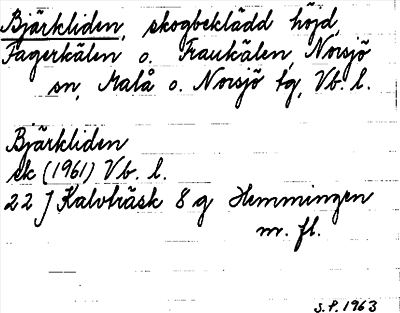 Bjärkliden, skogbeklädd höjd,
Fagerkälen o. Fraukälen, Norsjö
sn, Malå o. Norsjö tg, Vb. l.
Bjärkliden
ek (1961) Vb. l.
22 J Kalvträsk 8 g Hemmingen
m. fl.
S.P. 1963